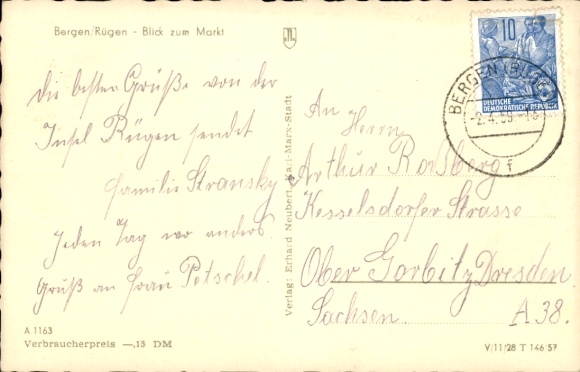 Bergen/Rügen - Blick zum Markt
Die besten Grüße von der
Insel Rügen sendet
Familie Stransky
Jeden Tag wo anders.
Gruß an Frau Petschel.
A 1163
Verbraucherpreis —,15 DM
Verlag: Erhard Neubert, Karl-Marx-Stadt
10
DEUTSCHE
DEMOKRATISCHE REPUBLIK
BERGEN
-2.4.59
f
An
Herrn
Arthur Roßberg
Kesselsdorfer Strasse
Ober Gorbitz Dresden
Sachsen. A 38.
V/11/28 T 146/57